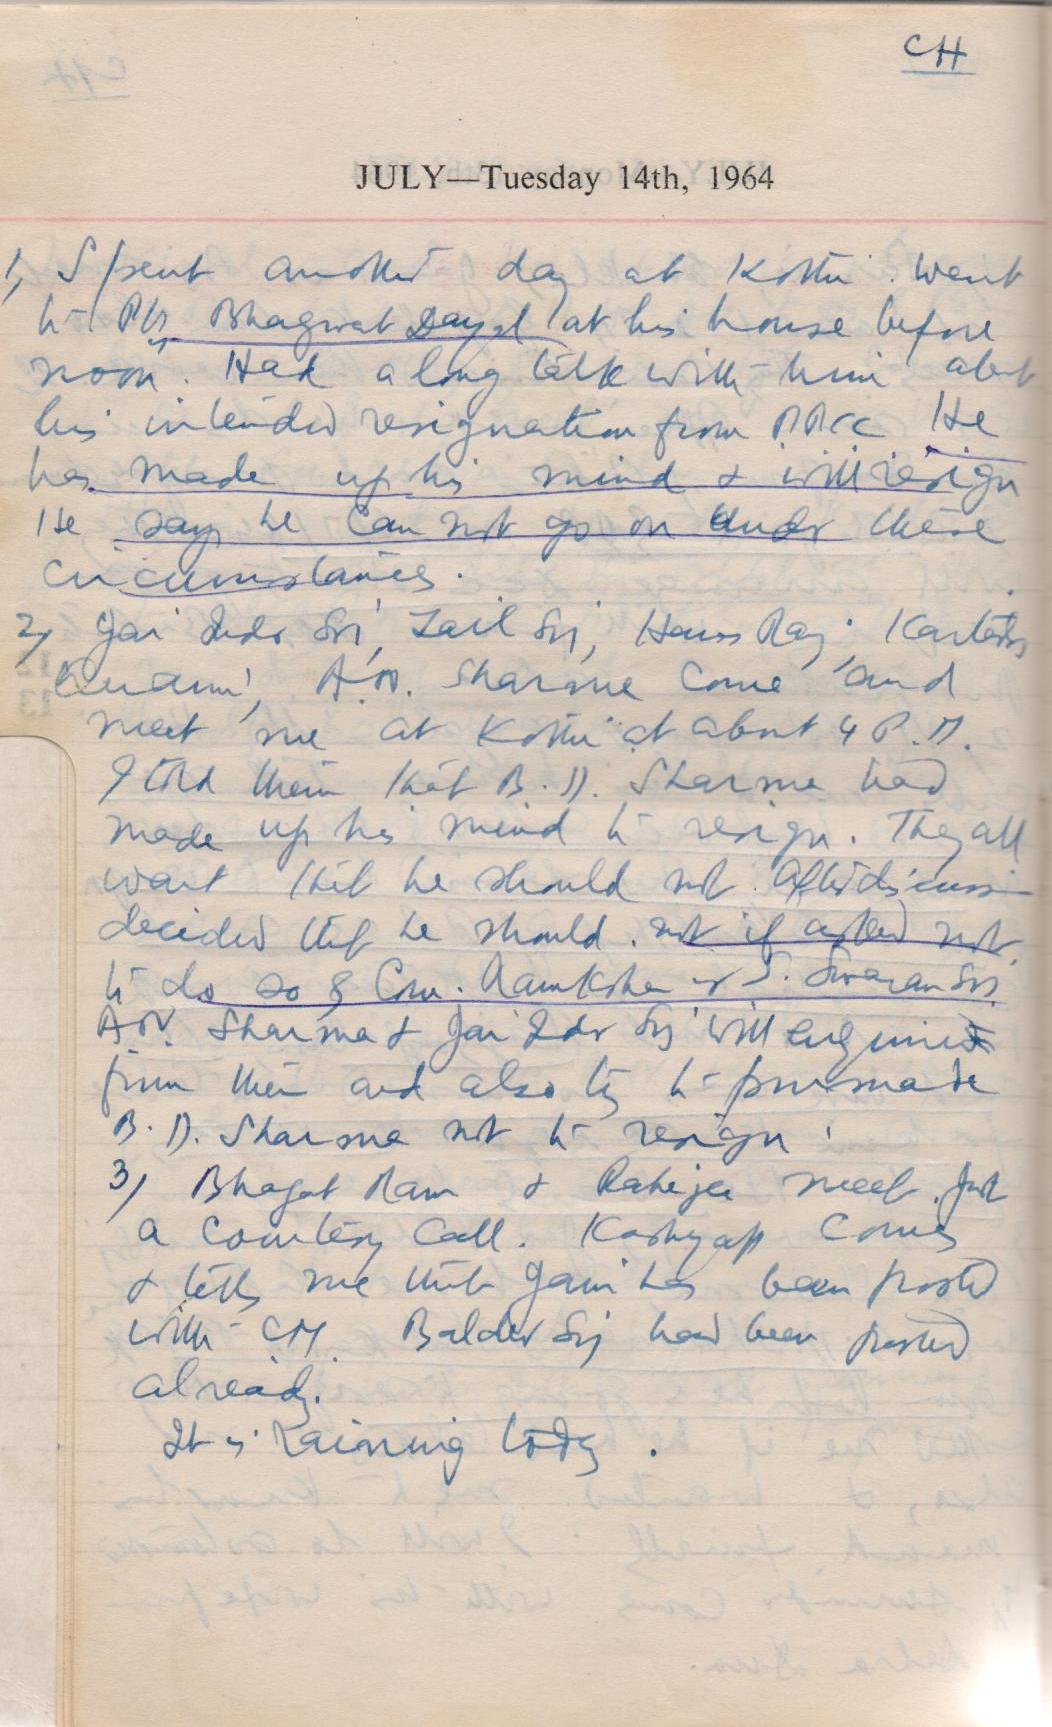 CH
JULY—Tuesday 14th, 1964
1, Spent another day at Kothi. Went
to Pt. Bhagwat Dayal at his house before
noon. Had a long talk with him about
his intended resignation from PPCC He
has made up his mind & will resign
He says he can not go on under these
circumstances.
2, Jai Inder Sij, Zail Sij, Hans Raj, Kartar
A.N. Sharma come and
meet me at Kothi at about 4 P.M.
I told them that B.D. Sharma had
made up his mind to resign. They all
want that he should not. After discussion
decided that he should not if asked not
to do so by Com. Ramkishan or S. Swaran Sij.
A.N. Sharma & Jai Inder Sij will
from them and also try to persuade
B.D. Sharma not to resign.
3, Bhagat Ram & Raheja meet. Just
a Courtesy Call. Kashyap comes
& tells me that Jain has been posted
with CM. Baldev Sij had been posted
already.
It is Raining today.